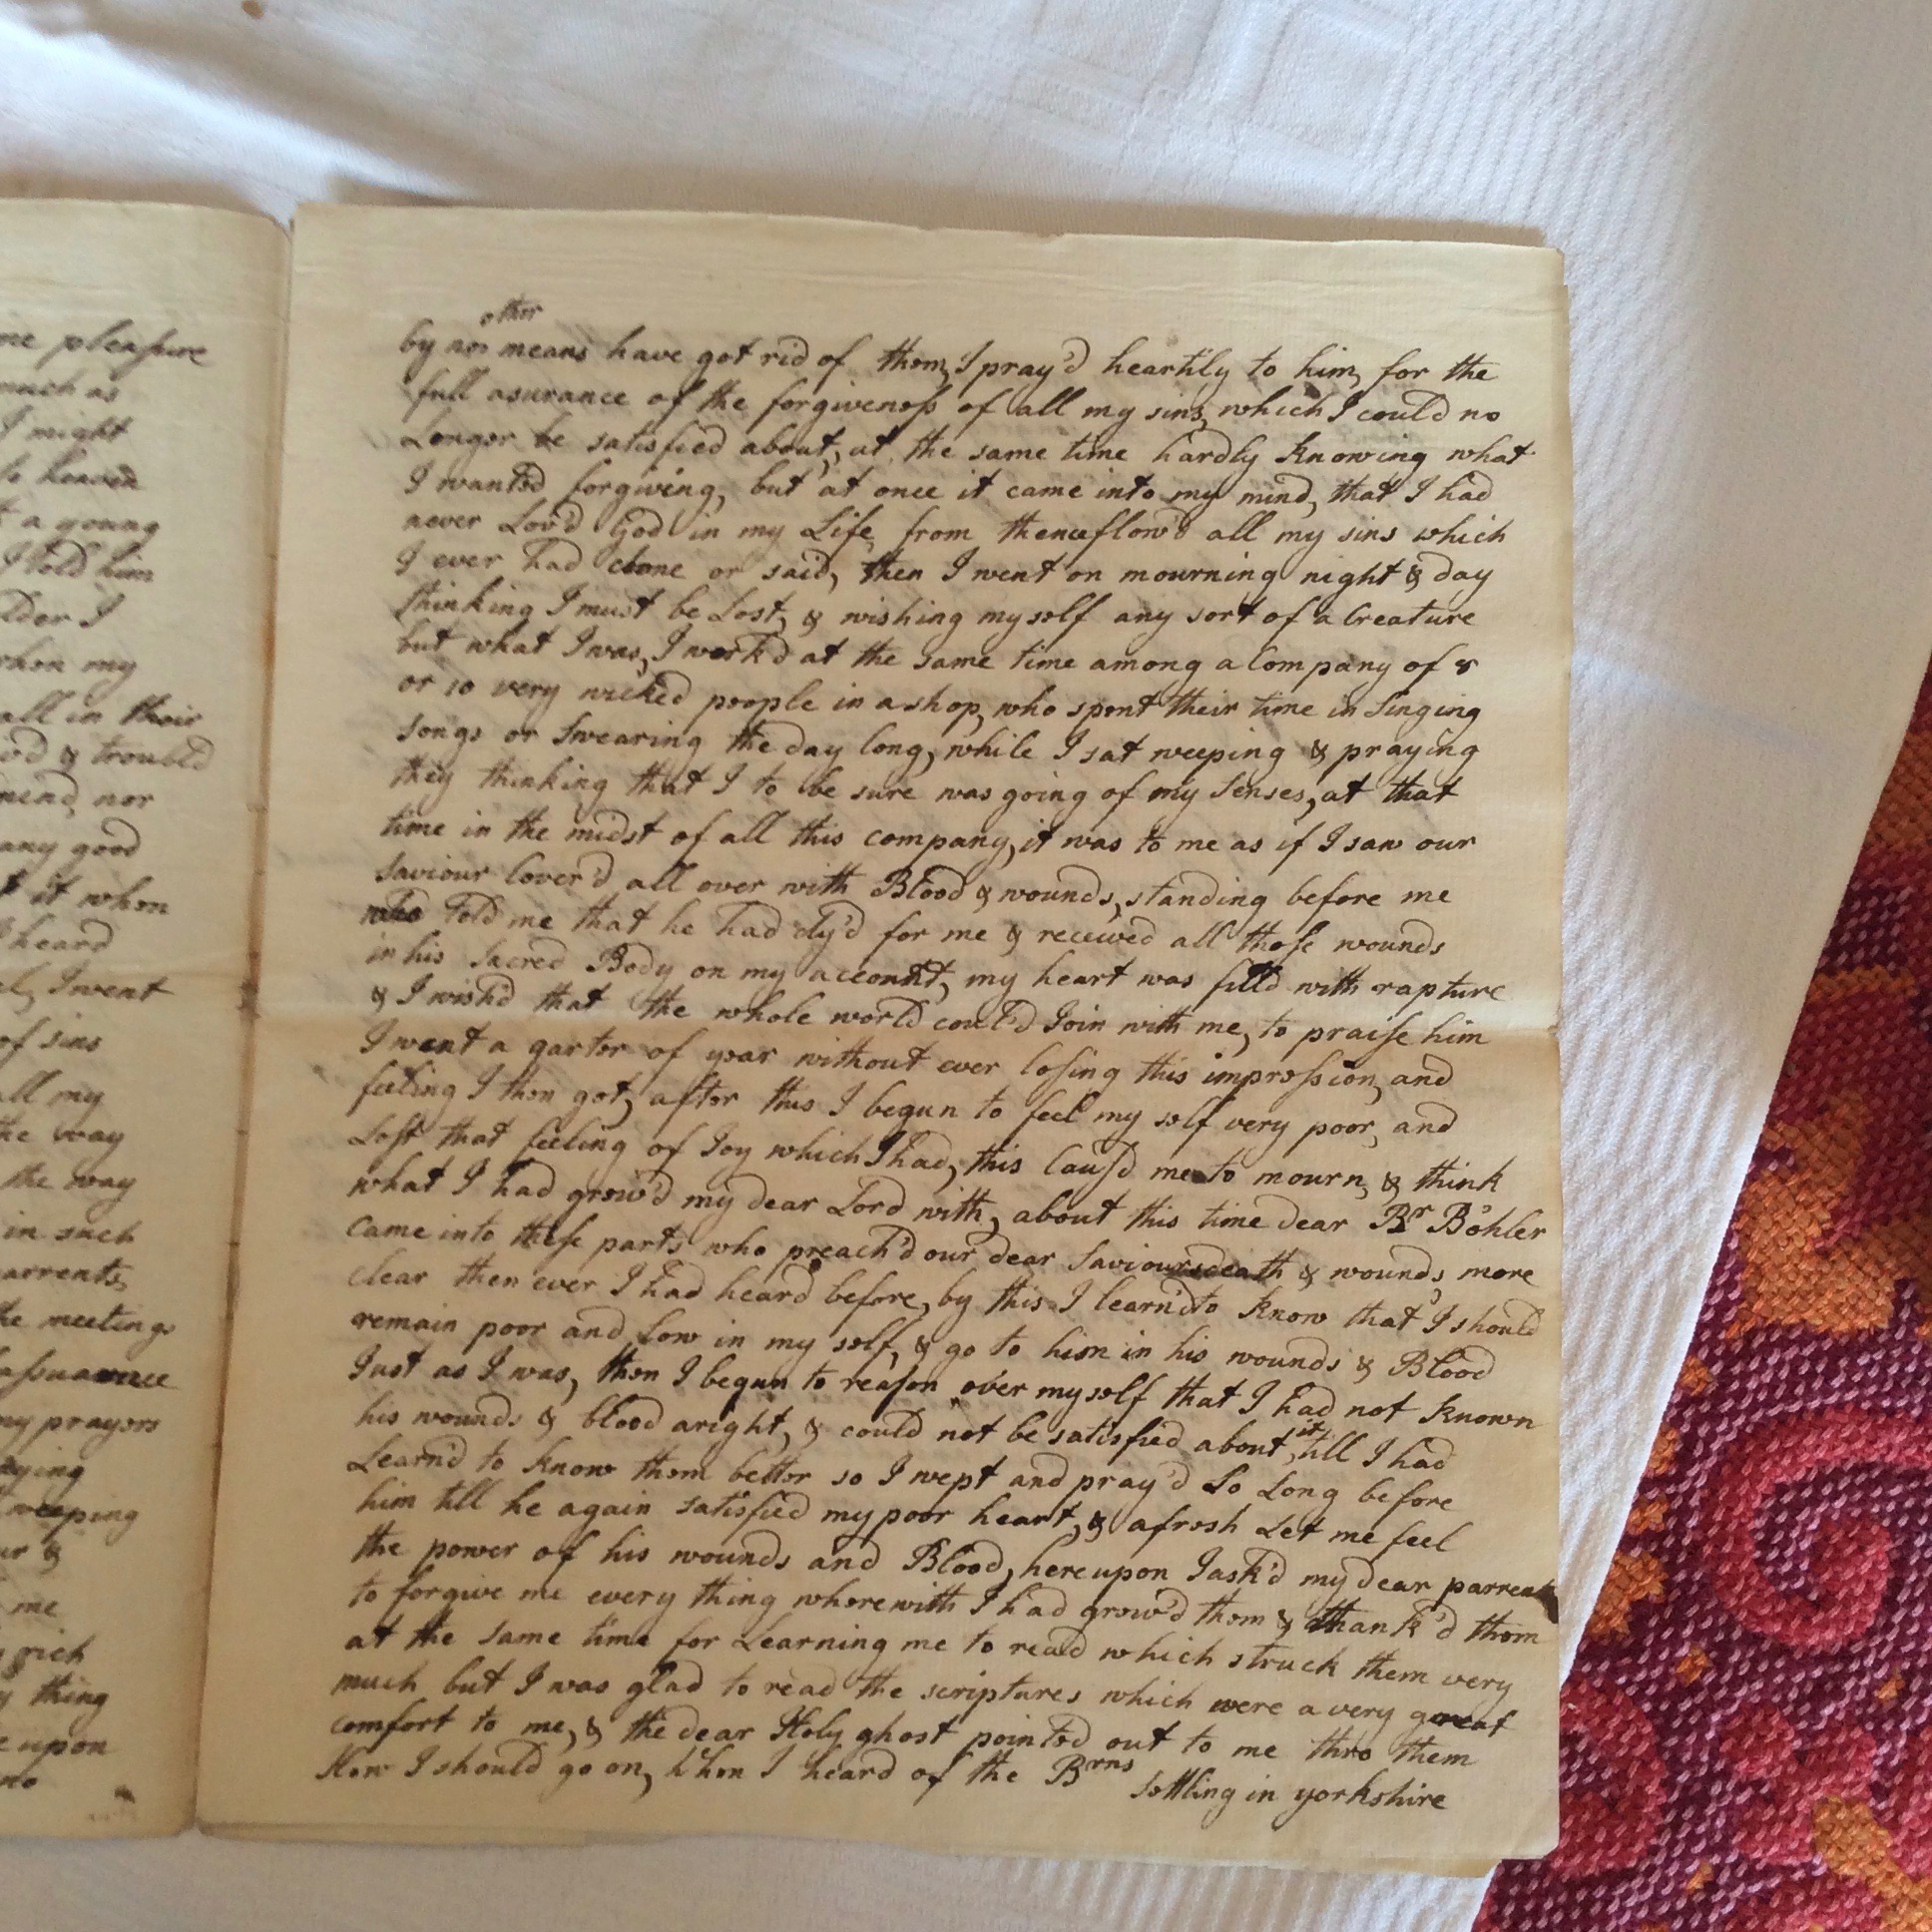 me pleasure
much as
I might
to heaven
a young
I told him
lder I
when my
all in their
& troubld
mind, nor
any good
it when
heard
I went
of sins
all my
the way
the way
in such
parrents,
the meetings
assuarnce
my prayers
weeping
&
me
rich
thing
upon
no
other
by no means have got rid of them, I pray'd heartily to him, for the
full asurance of the forgiveness of all my sins, which I could no
Longer be satisfied about, at the same time hardly knowing what
I wanted forgiving, but at once it came into my mind, that I had
never Lov'd God in my Life, from thence flow'd all my sins which
I ever had done or said, then I went on mourning night & day
thinking I must be Lost, & wishing my self any sort of a Creature
but what I was, I work'd at the same time among a Company of 8
or 10 very wicked people in a shop, who spent their time in Singing
songs or Swearing the day long, while I sat weeping & praying
they thinking that I to be sure was going of my Senses, at that
time in the midst of all this company, it was to me as if I saw our
Saviour Cover'd all over with Blood & wounds, standing before me
who Told me that he had dy'd for me & received all those wounds
in his Sacred Body on my account, my heart was filld with rapture
& I wish'd that the whole world could Join with me, to praise him
I went a garter of year without ever losing this impression, and
feeling I then got, after this I begun to feel my self very poor, and
Lost that feeling of Joy which I had, this Caus'd me to mourn, & think
what I had grew'd my dear Lord with, about this time dear Br Böhler
came into these parts who preach'd our dear Saviours death & wounds, more
clear then ever I had heard before, by this I learn'd to know that I should
remain poor and Low in my self, & go to him in his wounds & Blood
Just as I was, then I begun to reason over my self that I had not known
his wounds & blood aright, & could not be satisfied about it, till I had
Learn'd to know them better so I wept and pray'd So Long before
him till he again satisfied my poor heart, & afresh Let me feel
the power of his wounds and Blood, here upon I ask'd my dear parrents
to forgive me every thing wherewith I had grew'd them & thank'd them
at the same time for Learning me to read which struck them very
much but I was glad to read the scriptures which were a very great
comfort to me, & the dear Holy ghost pointed out to me thro them
How I should go on, When I heard of the Brns settling in yorkshire